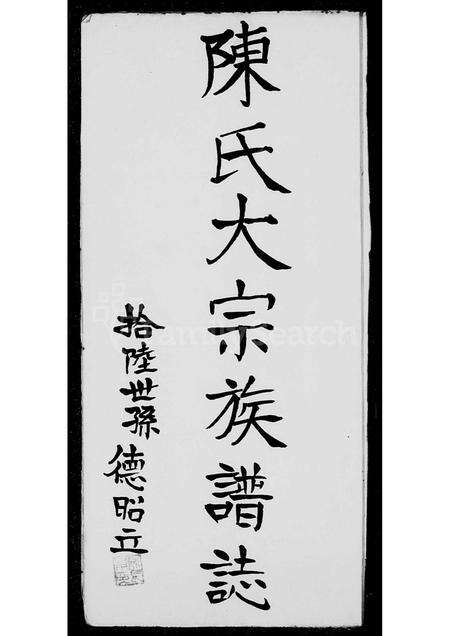 陳氏大宗族譜誌
拾陸世孫德昭立
FamilySearch